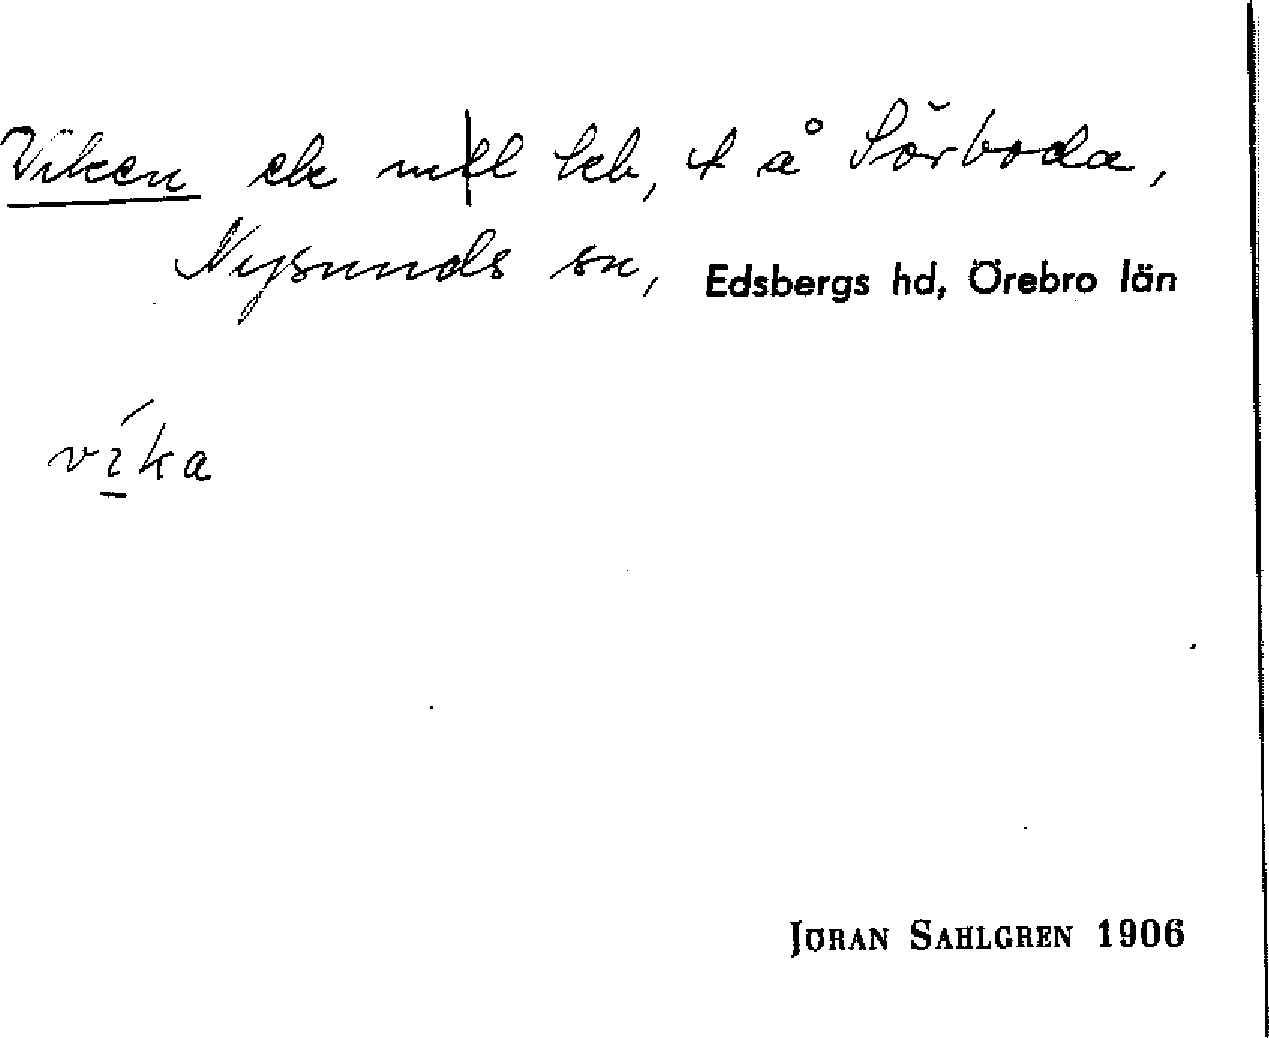 Viken ek mtl lkb, t å Sörboda,
Nysunds sn, Edsbergs hd, Örebro län
víka
JÖRAN SAHLGREN 1906